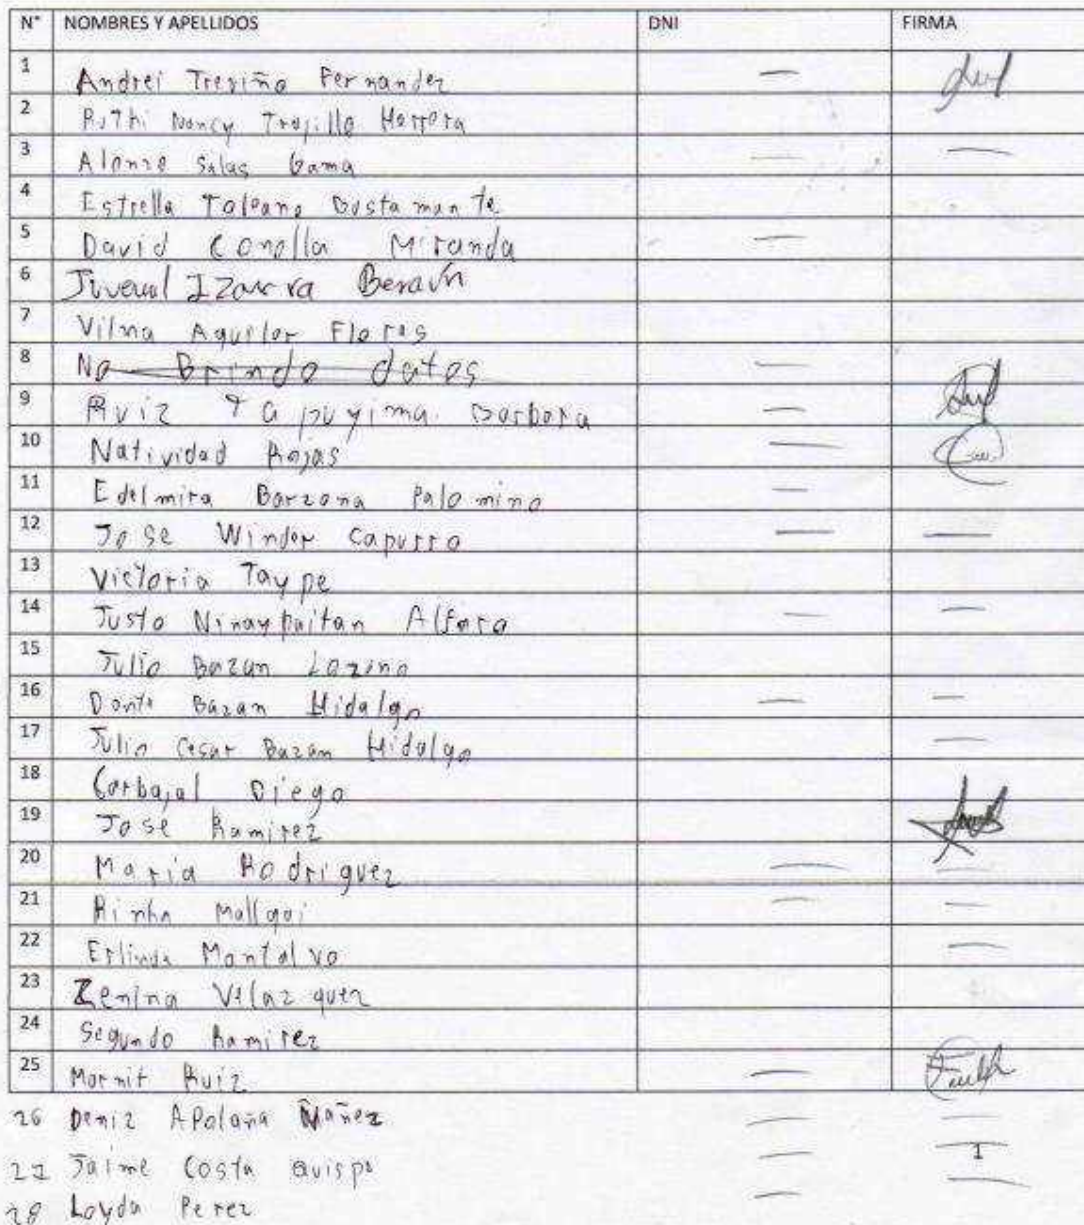 N° NOMBRES Y APELLIDOS DNI FIRMA
1 Andrei Treviño Fernandez —
2 Ruthi Nancy Trujillo Herrera
3 Alonzo Salas Gama — —
4 Estrella Toleano Bustamante
5 David Conolla Miranda —
6 Juvenal Izarra Beraún
7 Vilma Aguilar Flores
8 No Brindo datos —
9 Ruiz Barbora —
10 Natividad Rojas —
11 Edelmira Barzona Palomino —
12 Jose Winder Capurro — —
13 Victoria Taype
14 Justo Ninaypaitan Alfaro — —
15 Julio Bazan Lozano
16 Dante Bazan Hidalgo — —
17 Julio Cesar Bazan Hidalgo —
18 Carbajal Diego
19 Jose Ramirez
20 Maria Rodriguez — —
21 Mallqui — —
22 Erlinda Montalvo —
23 Zenina Velazquez
24 Segundo Ramirez
25 Marnit Ruiz —
26 Deniz Apolaña Ñañez — —
27 Jaime Costa Quispe — 1
28 Loyda Perez — —